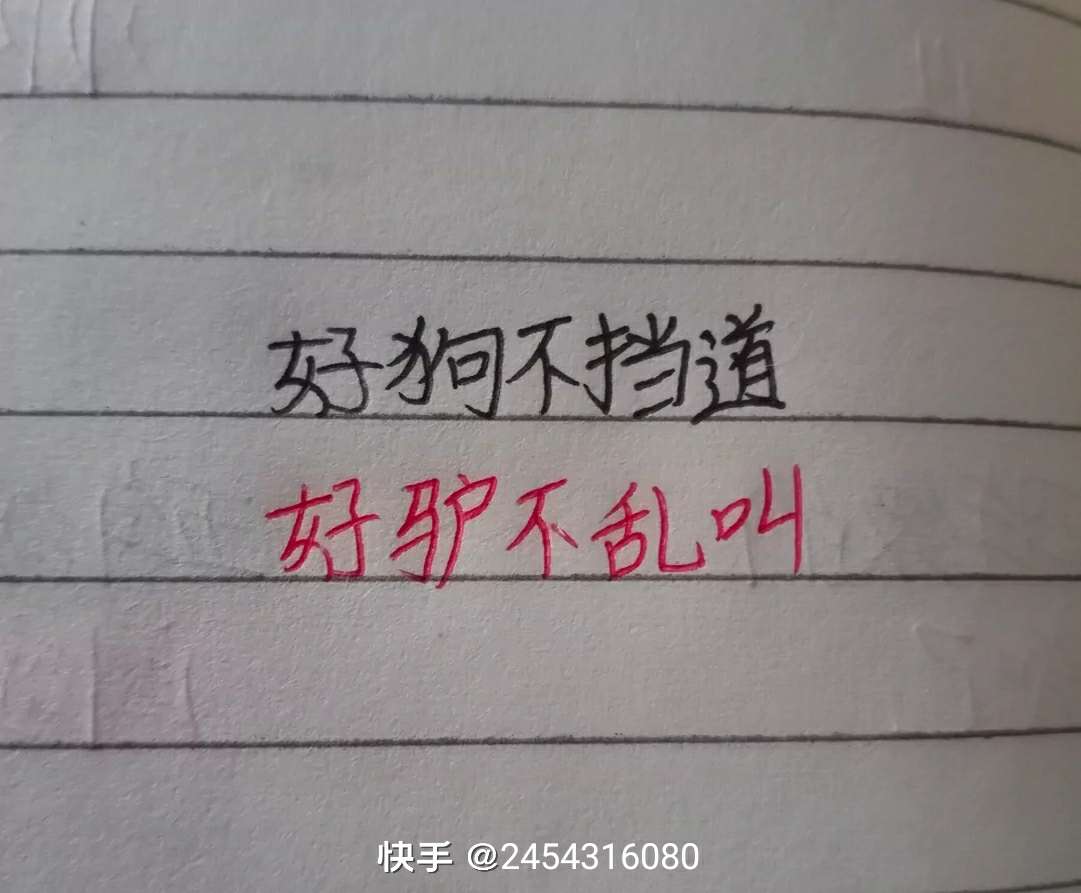 好狗不挡道
好驴不乱叫
快手 @2454316080